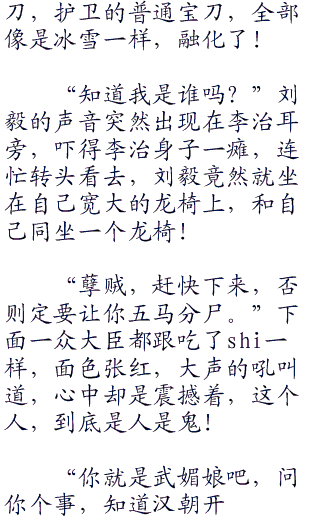 刀，护卫的普通宝刀，全部
像是冰雪一样，融化了！
“知道我是谁吗？”刘
毅的声音突然出现在李治耳
旁，吓得李治身子一瘫，连
忙转头看去，刘毅竟然就坐
在自己宽大的龙椅上，和自
己同坐一个龙椅！
“孽贼，赶快下来，否
则定要让你五马分尸。”下
面一众大臣都跟吃了shi一
样，面色张红，大声的吼叫
道，心中却是震撼着，这个
人，到底是人是鬼！
“你就是武媚娘吧，问
你个事，知道汉朝开